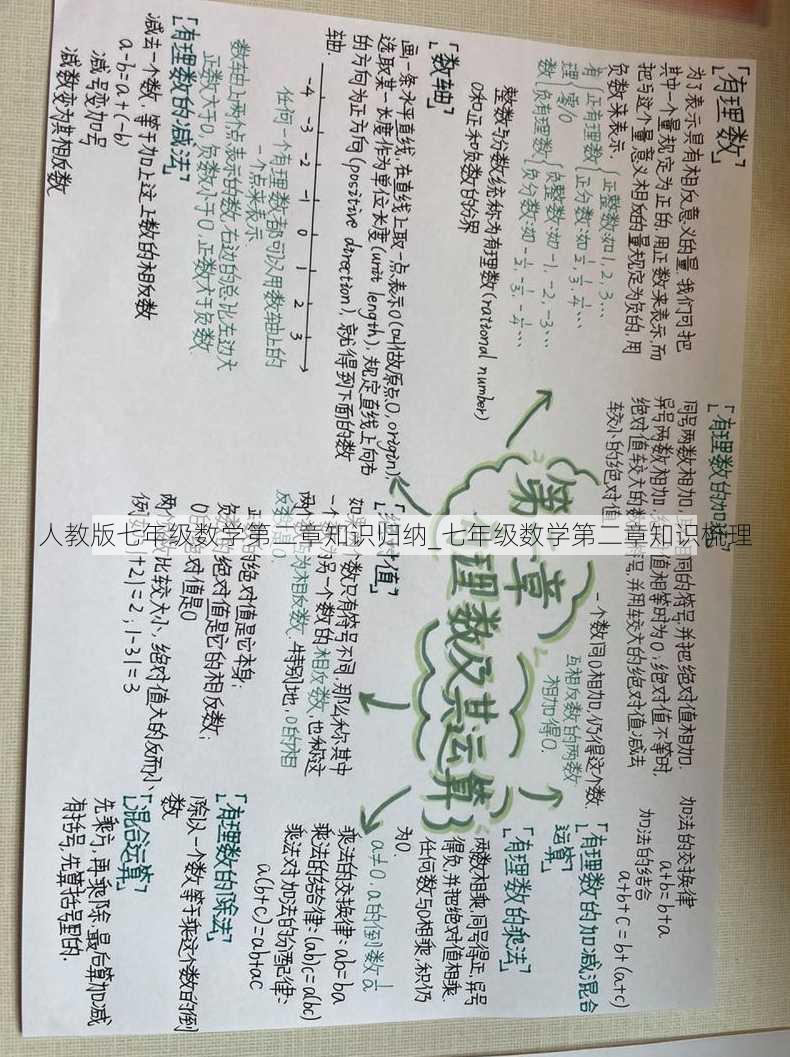 「有理数」
为了表示具有相反意义的量,我们可把
其中一个量规定为正的,用正数来表示,而
把与这个量意义相反的量规定为负的,用
负数来表示.
有理数
正有理数
正整数:如1,2,3…
正分数:如
零0
负有理数
负整数:如-1,-2,-3…
负分数:如-1/2,-1/3,-1/4…
整数与分数统称为有理数(rational number)
0和正和负数的分界
「数轴」
画一条水平直线,在直线上取一点表示0(叫做原点O,origin),
选取某一长度作为单位长度(unit length),规定直线上向右
的方向为正方向(positive direction),就得到下面的数
轴.
-4 -3 -2 -1 0 1 2 3
任何一个有理数都可以用数轴上的
一个点来表示.
数轴上两个点表示的数,右边的总比左边大
正数大于0,负数小于0,正数大于负数
「有理数的减法」
减去一个数,等于加上这上数的相反数
a-b=a+(-b)
减号变加号
减数变为其相反数
「有理数的加法」
同号两数相加,同的符号,并把绝对值相加.
异号两数相加,值相等时为0;绝对值不等时,
绝对值较大的数号,并用较大的绝对值减去
较小的绝对值
一个数同0相加,仍得这个数.
互相反数的两数
相加得0.
加法的交换律
a+b=b+a
加法的结合
a+b+c=b+(a+c)
第章
理数及其运算
值」
如数只有符号不同,那么称其中
一个为另一个数的相反数,也称这
两个为相反数.特别地,0的相
反数
正的绝对值是它本身;
负的绝对值是它的相反数;
0对值是0
两个比较大小,绝对值大的反而小.
例+2|=2,|-3|=3
「有理数的加减混合
运算」
「有理数的乘法」
两数相乘,同号得正,异号
得负,并把绝对值相乘.
任何数与0相乘,积仍
为0.
a≠0,a的倒数1/a
乘法的交换律:ab=ba
乘法的结合律:(ab)c=a(bc)
乘法对加法的分配律:
a(b+c)=ab+ac
「有理数的除法」
除以一个数等于乘这个数的倒
数
「混合运算」
先乘方,再乘除,最后算加减
有括号,先算括号里的.
人教版七年级数学第二章知识归纳_七年级数学第二章知识梳理